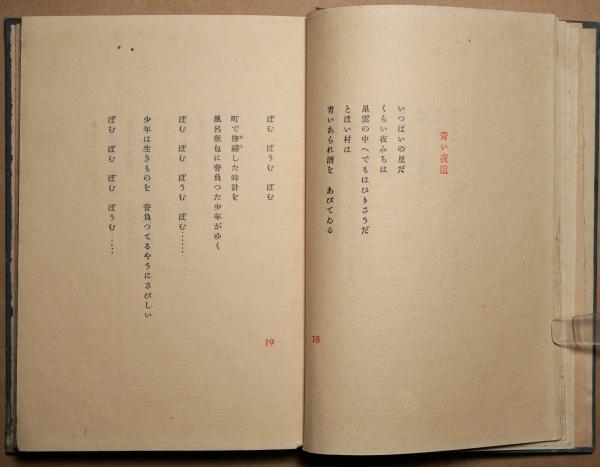 青い夜道
いつぱいの星だ
くらい夜みちは
星雲の中へでもはひりさうだ
とほい村は
青いあられ酒を あびてゐる
18
ぼむ ぼうむ ぼむ
町で修繕した時計を
風呂敷包に脊負つた少年がゆく
ぼむ ぼむ ぼうむ ぼむ……
少年は生きものを 脊負つてるやうにさびしい
ぼむ ぼむ ぼむ ぼうむ……
19